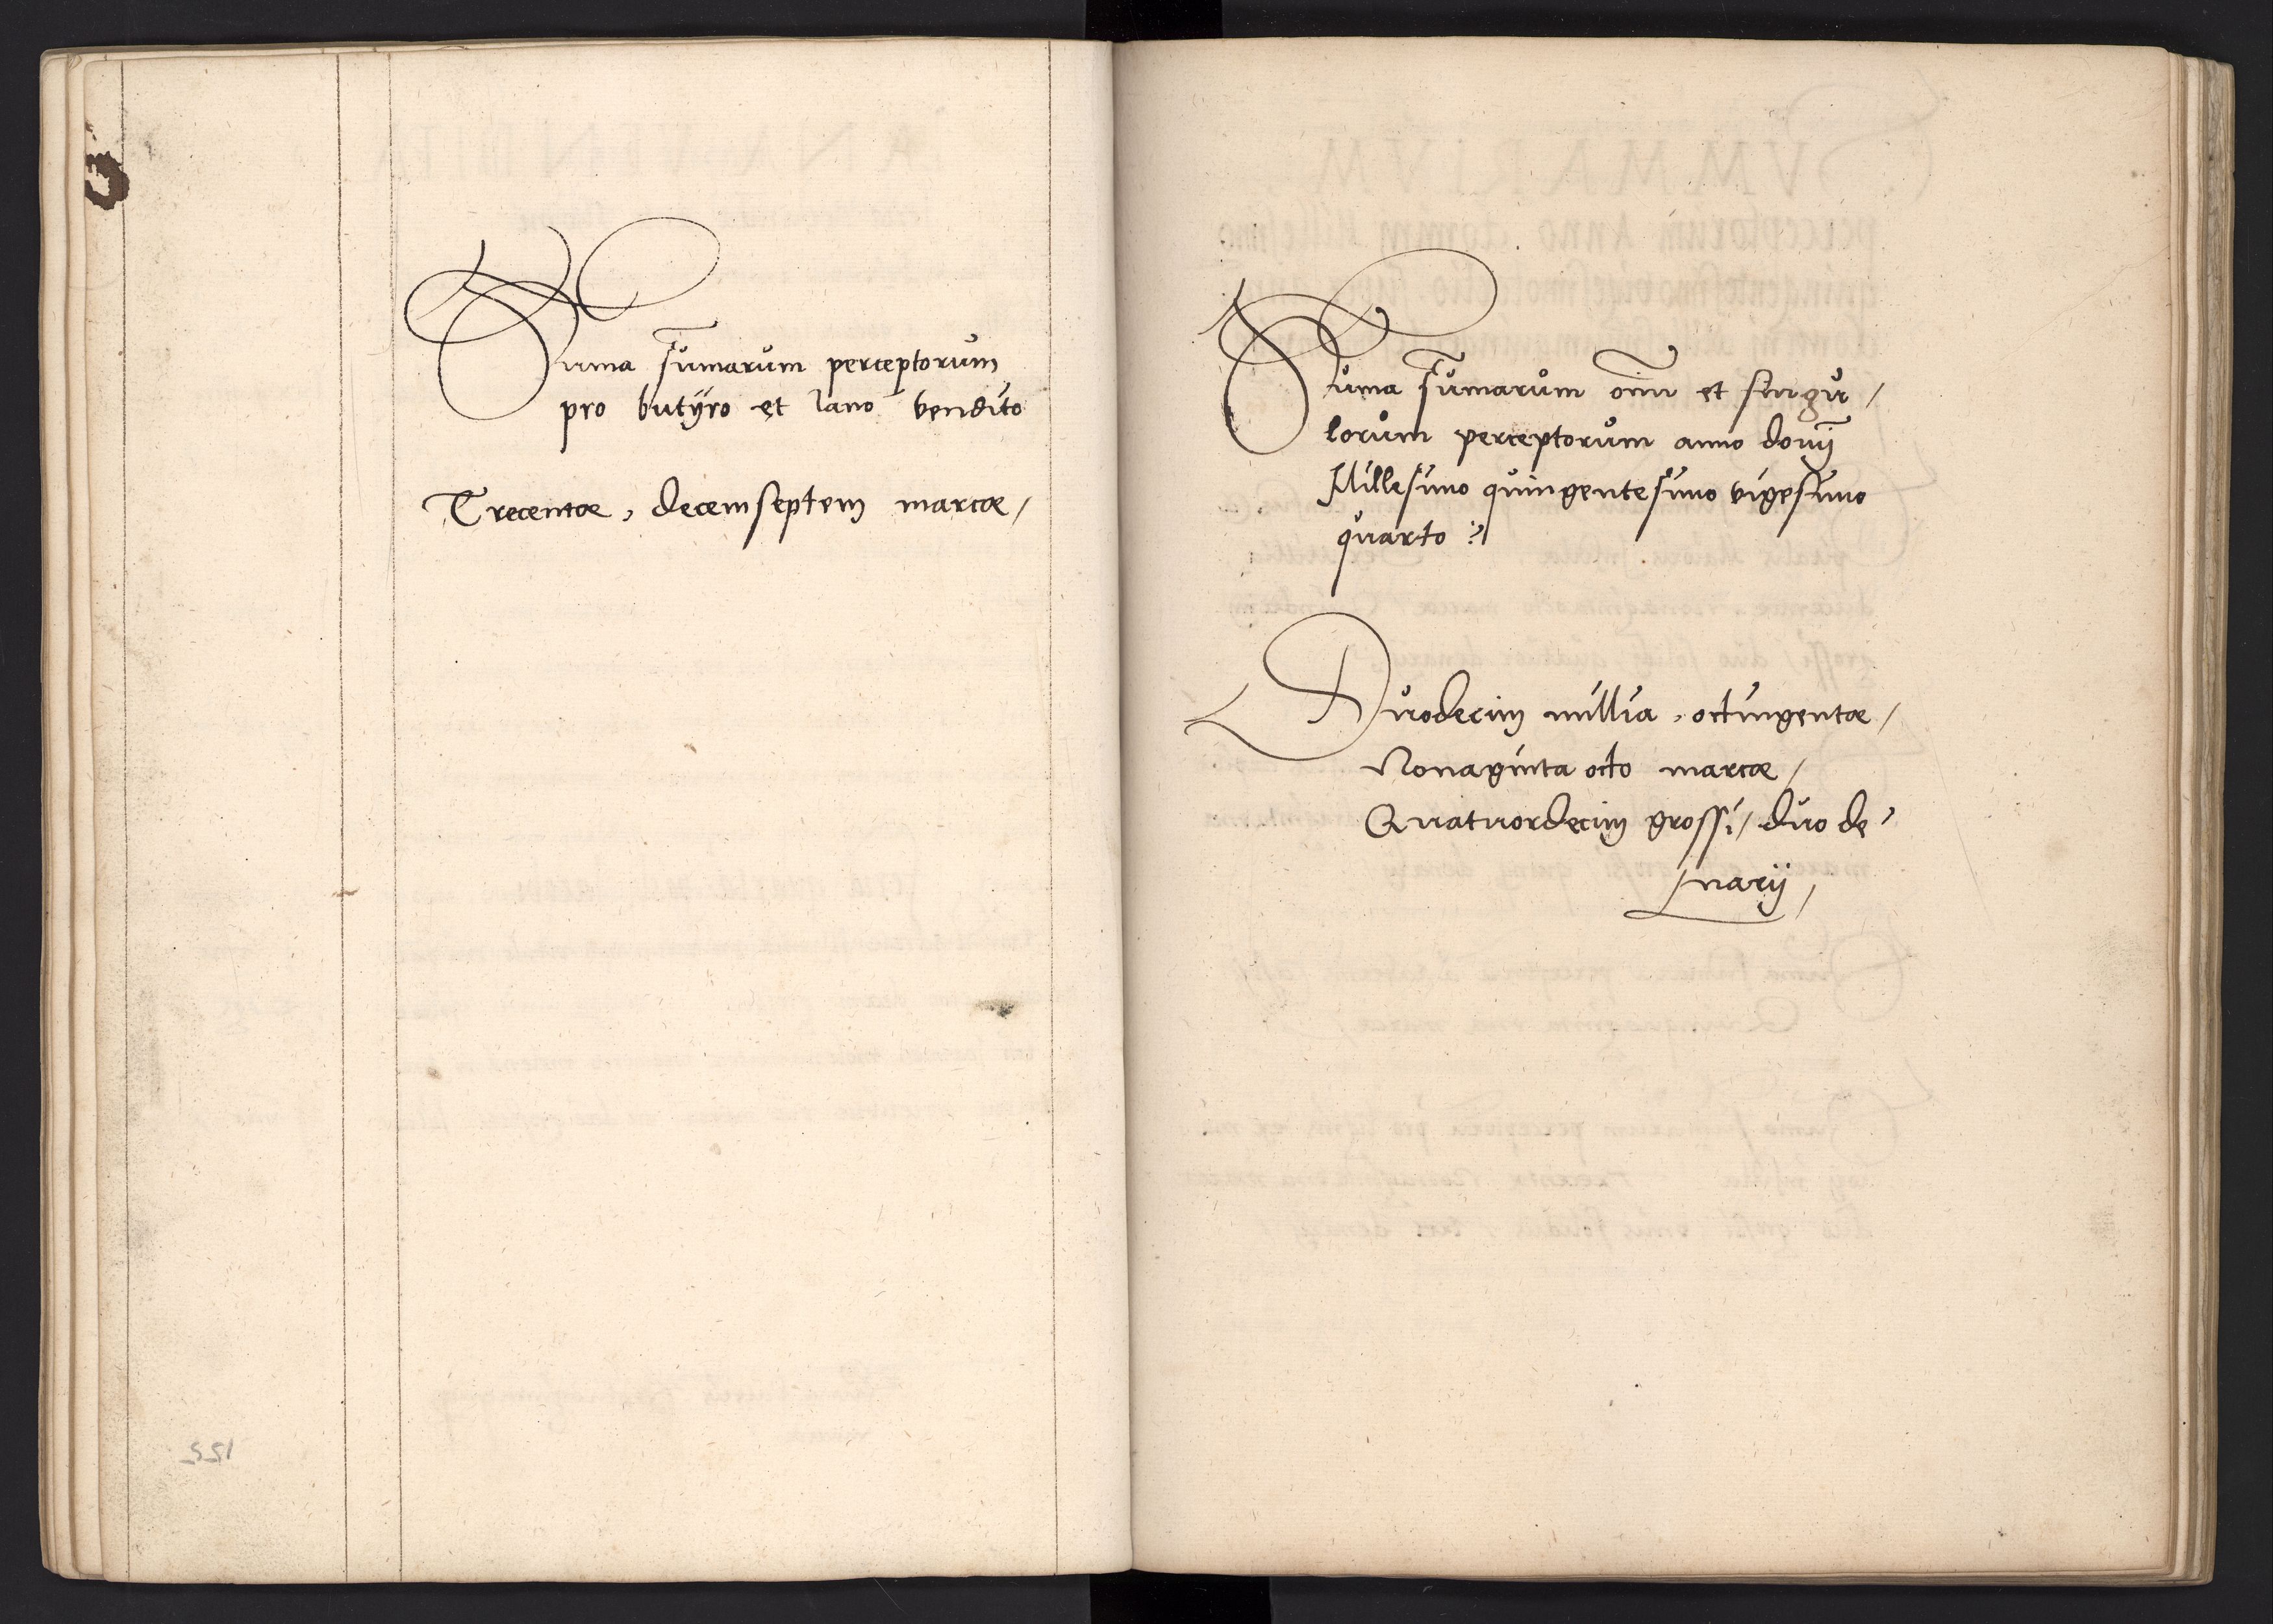 Suma sūmarum perceptorum
pro butÿro et lano vendito
Trecentæ, decemseptem marcæ /
Suma sūmarum om̄iū et singu /
lorum perceptorum anno domī
Millesimo quingentesimo vigesimo
quarto
Duodecim millia, octingentæ /
Nonaginta octo marcæ /
Quatuordecim grossi / duo de
narij /